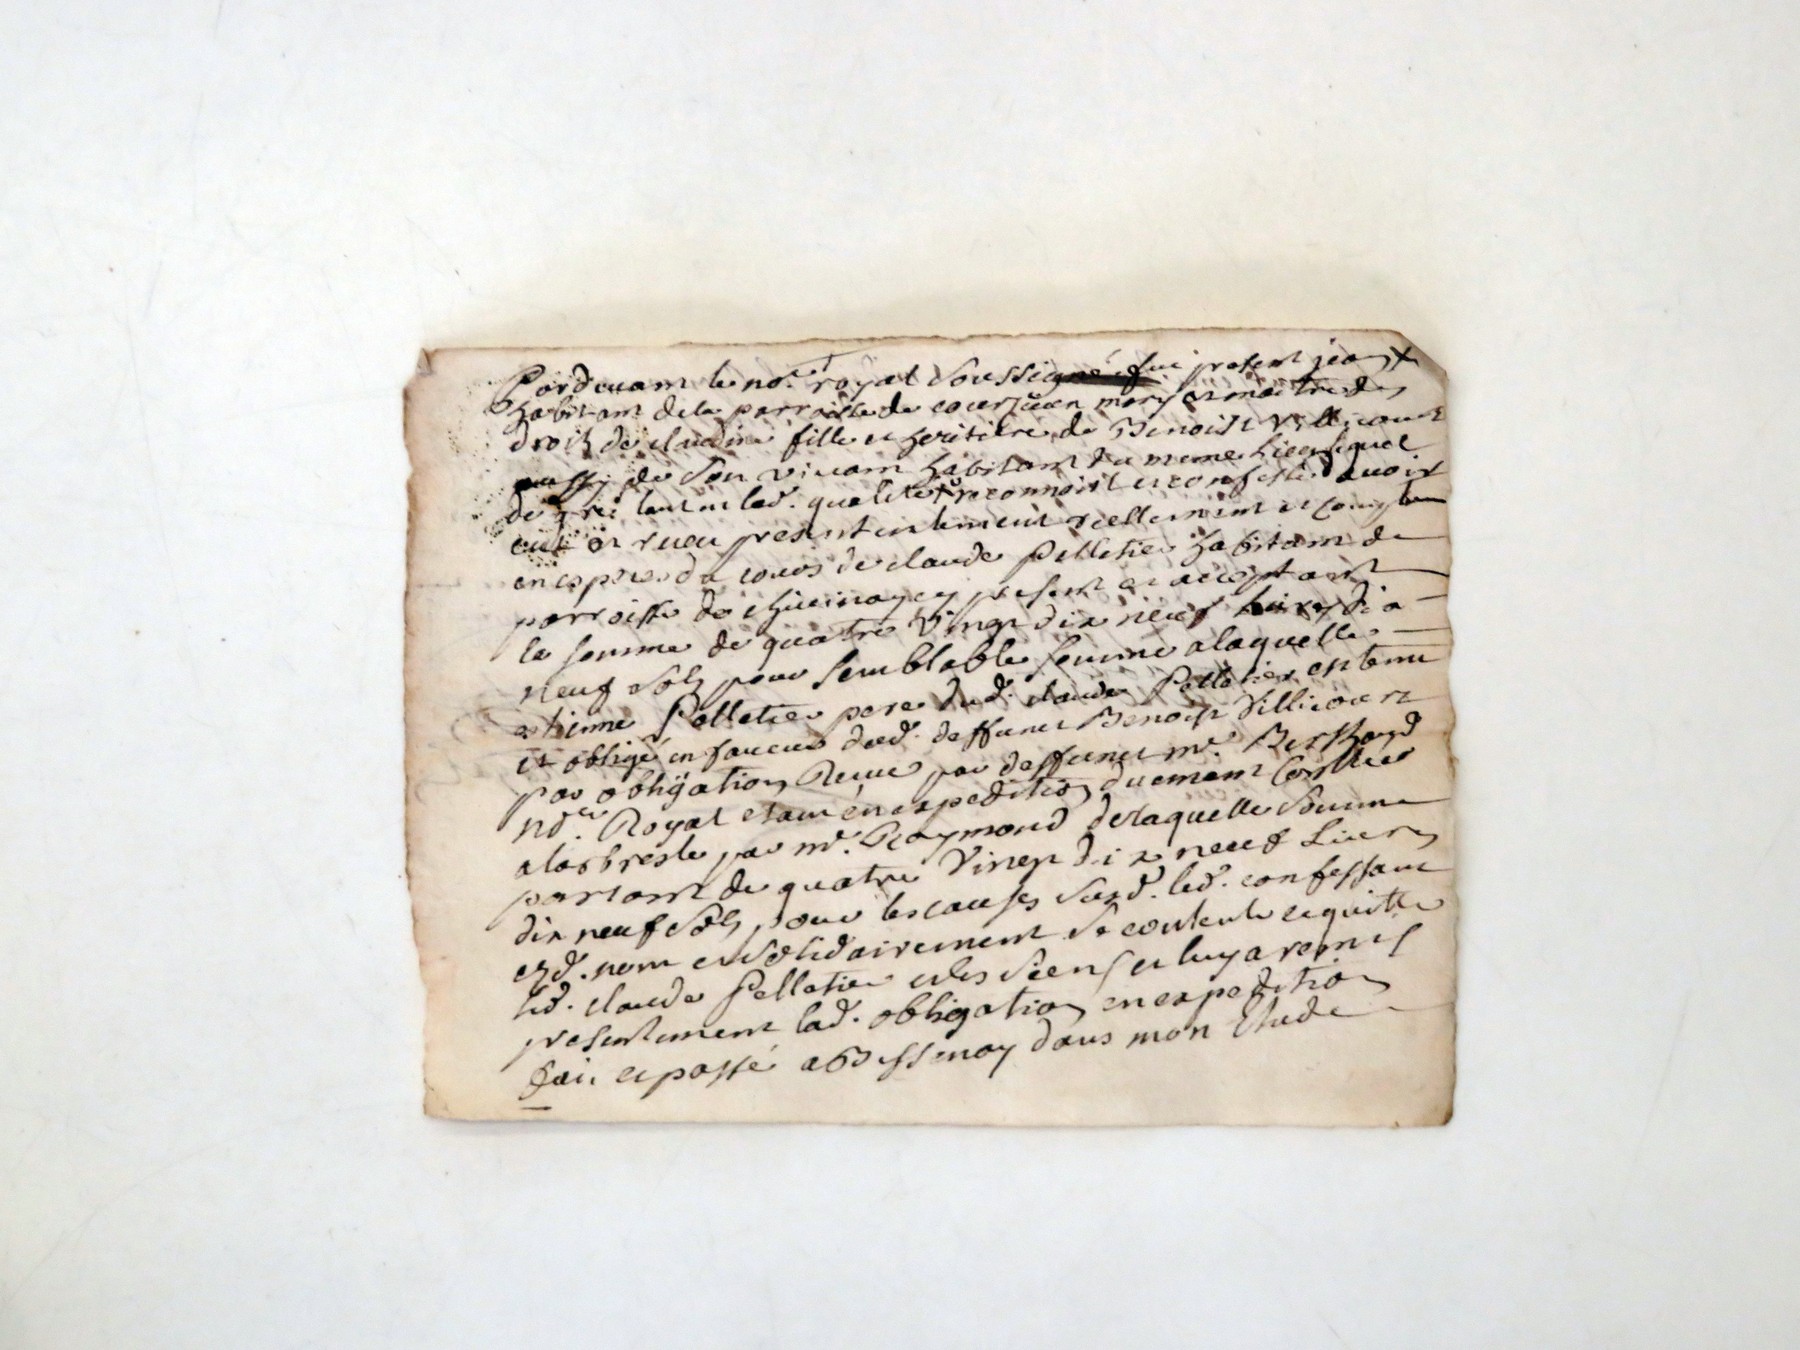 Pardevant le no.re royal Soussigné fut present jean x
habitant de la parroisse de courzieu mary et maitre des
droits de claudine fille et heritiere de Benoist Villicourt
de son vivant habitant du meme lieu lequel
de gré tant en lad. qualité reconnoist et confesse avoir
eut et receu presentement reellement et compta
en especes du cours de claude Pelletier habitant de
parroisse de present et acceptant
la somme de quatre Vingt dix neuf livres dix
neuf sols pour semblable somme a laquelle
etienne Pelletier pere dud. claude Pelletier est tenu
et obligé en faveur dud. deffunct Benoist Villicourt
par obligation Receue par deffunct me. Berthoud
No.re Royal etant en expedition duement Con.lée
a larbresle par me. Raymond de laquelle Somme
partant de quatre Vingt dix neuf Livres
dix neuf sols pour les causes Susd. led. confessant
esd. nom et solidairement Se contente et quitte
led. claude Pelletier et les siens et luy a remis
presentement lad. obligation en expedition
fait et passé a Bessenay dans mon Etude